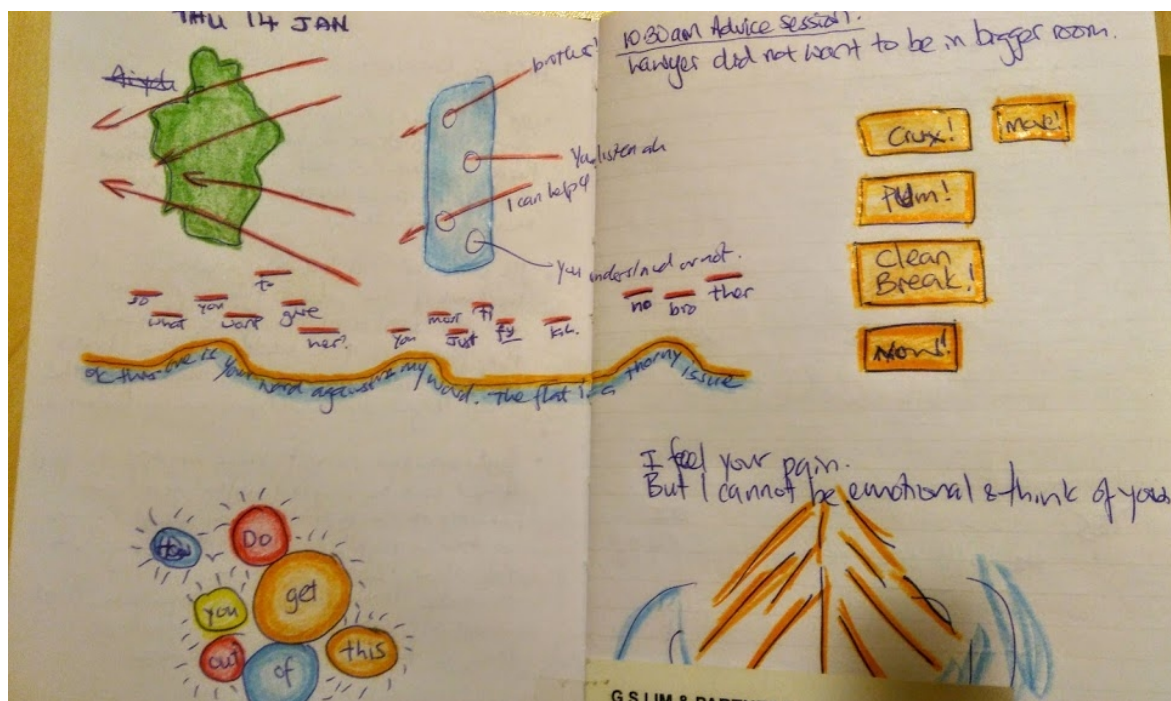 THU 14 JAN
brother!
You listen ah
I can help u
You understand or not.
so what you want to give her?
You must just
no bro ther
ok this one is your word against my word. The flat is a thorny issue
How Do
get
you
out of this
10.30am Advice session.
Lawyer did not want to be in bigger room.
Crux! Move!
Clean
Break!
Now!
I feel your pain.
But I cannot be emotional & think of your
G S LIM &